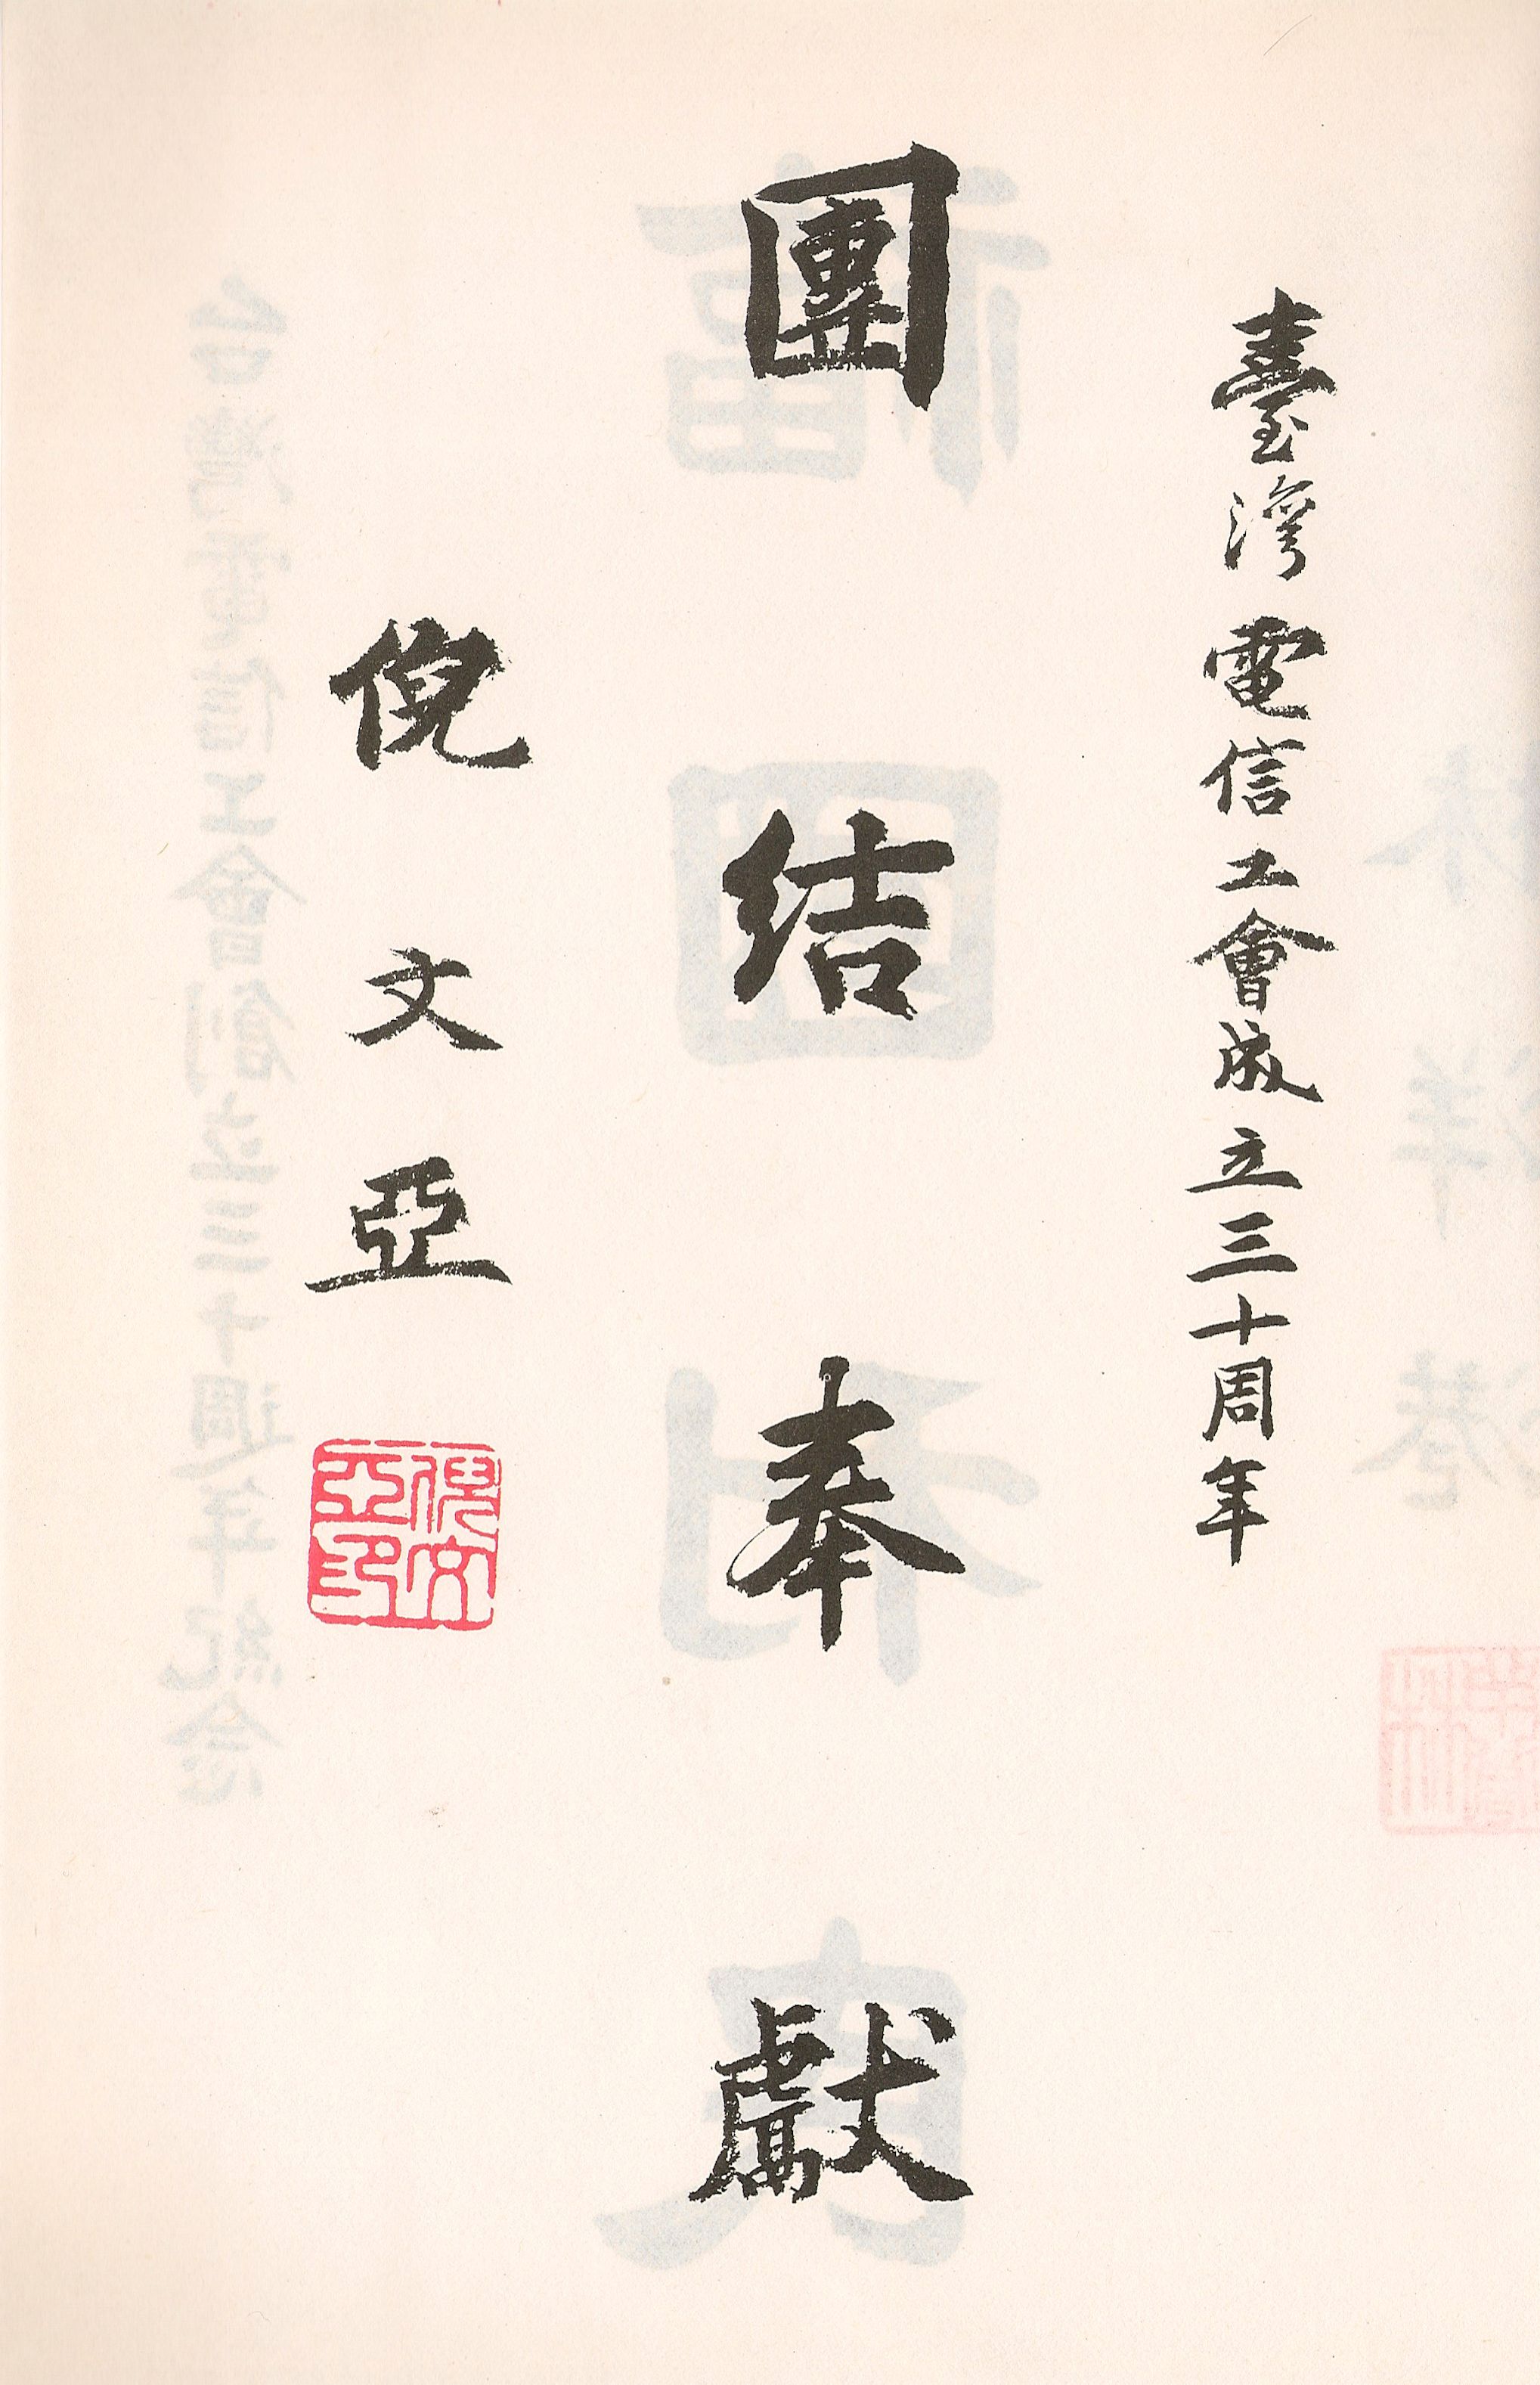 臺灣電信工會成立三十周年
團結奉獻
倪文亞
倪文亞印